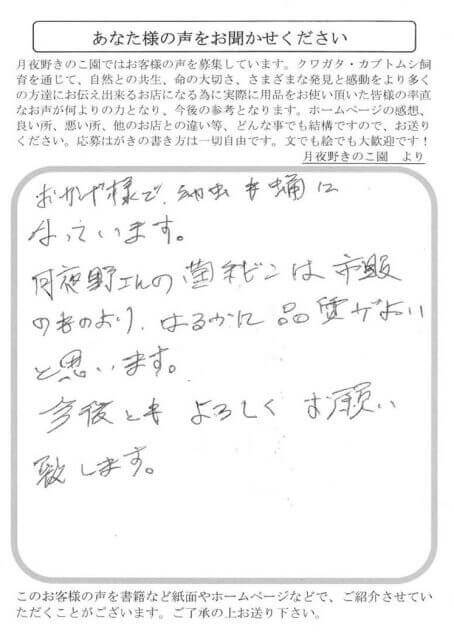 あなた様の声をお聞かせください
月夜野きのこ園ではお客様の声を募集しています。クワガタ・カブトムシ飼
育を通じて、自然との共生、命の大切さ、さまざまな発見と感動をより多く
の方達にお伝え出来るお店になる為に実際に用品をお使い頂いた皆様の率直
なお声が何よりの力となり、今後の参考となります。ホームページの感想、
良い所、悪い所、他のお店との違い等、どんな事でも結構ですので、お送り
ください。応募はがきの書き方は一切自由です。文でも絵でも大歓迎です！
月夜野きのこ園　より
おかげ様で、幼虫も蛹に
なっています。
月夜野さんの菌糸ビンは市販
のものより、はるかに品質がよい
と思います。
今後とも よろしく お願い
致します。
このお客様の声を書籍など紙面やホームページなどで、ご紹介させてい
ただくことがございます。ご了承の上お送り下さい。